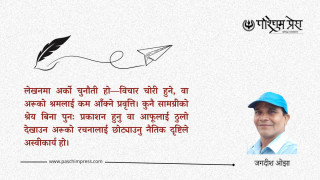 पश्चिम प्रेस
लेखनमा अर्को चुनौती हो—विचार चोरी हुने, वा
अरूको श्रमलाई कम आँक्ने प्रवृत्ति। कुनै सामग्रीको
श्रेय बिना पुनः प्रकाशन हुनु वा आफूलाई ठुलो
देखाउन अरूको रचनालाई छोट्याउनु नैतिक दृष्टिले
अस्वीकार्य हो।
www.paschimpress.com
जगदीश ओझा